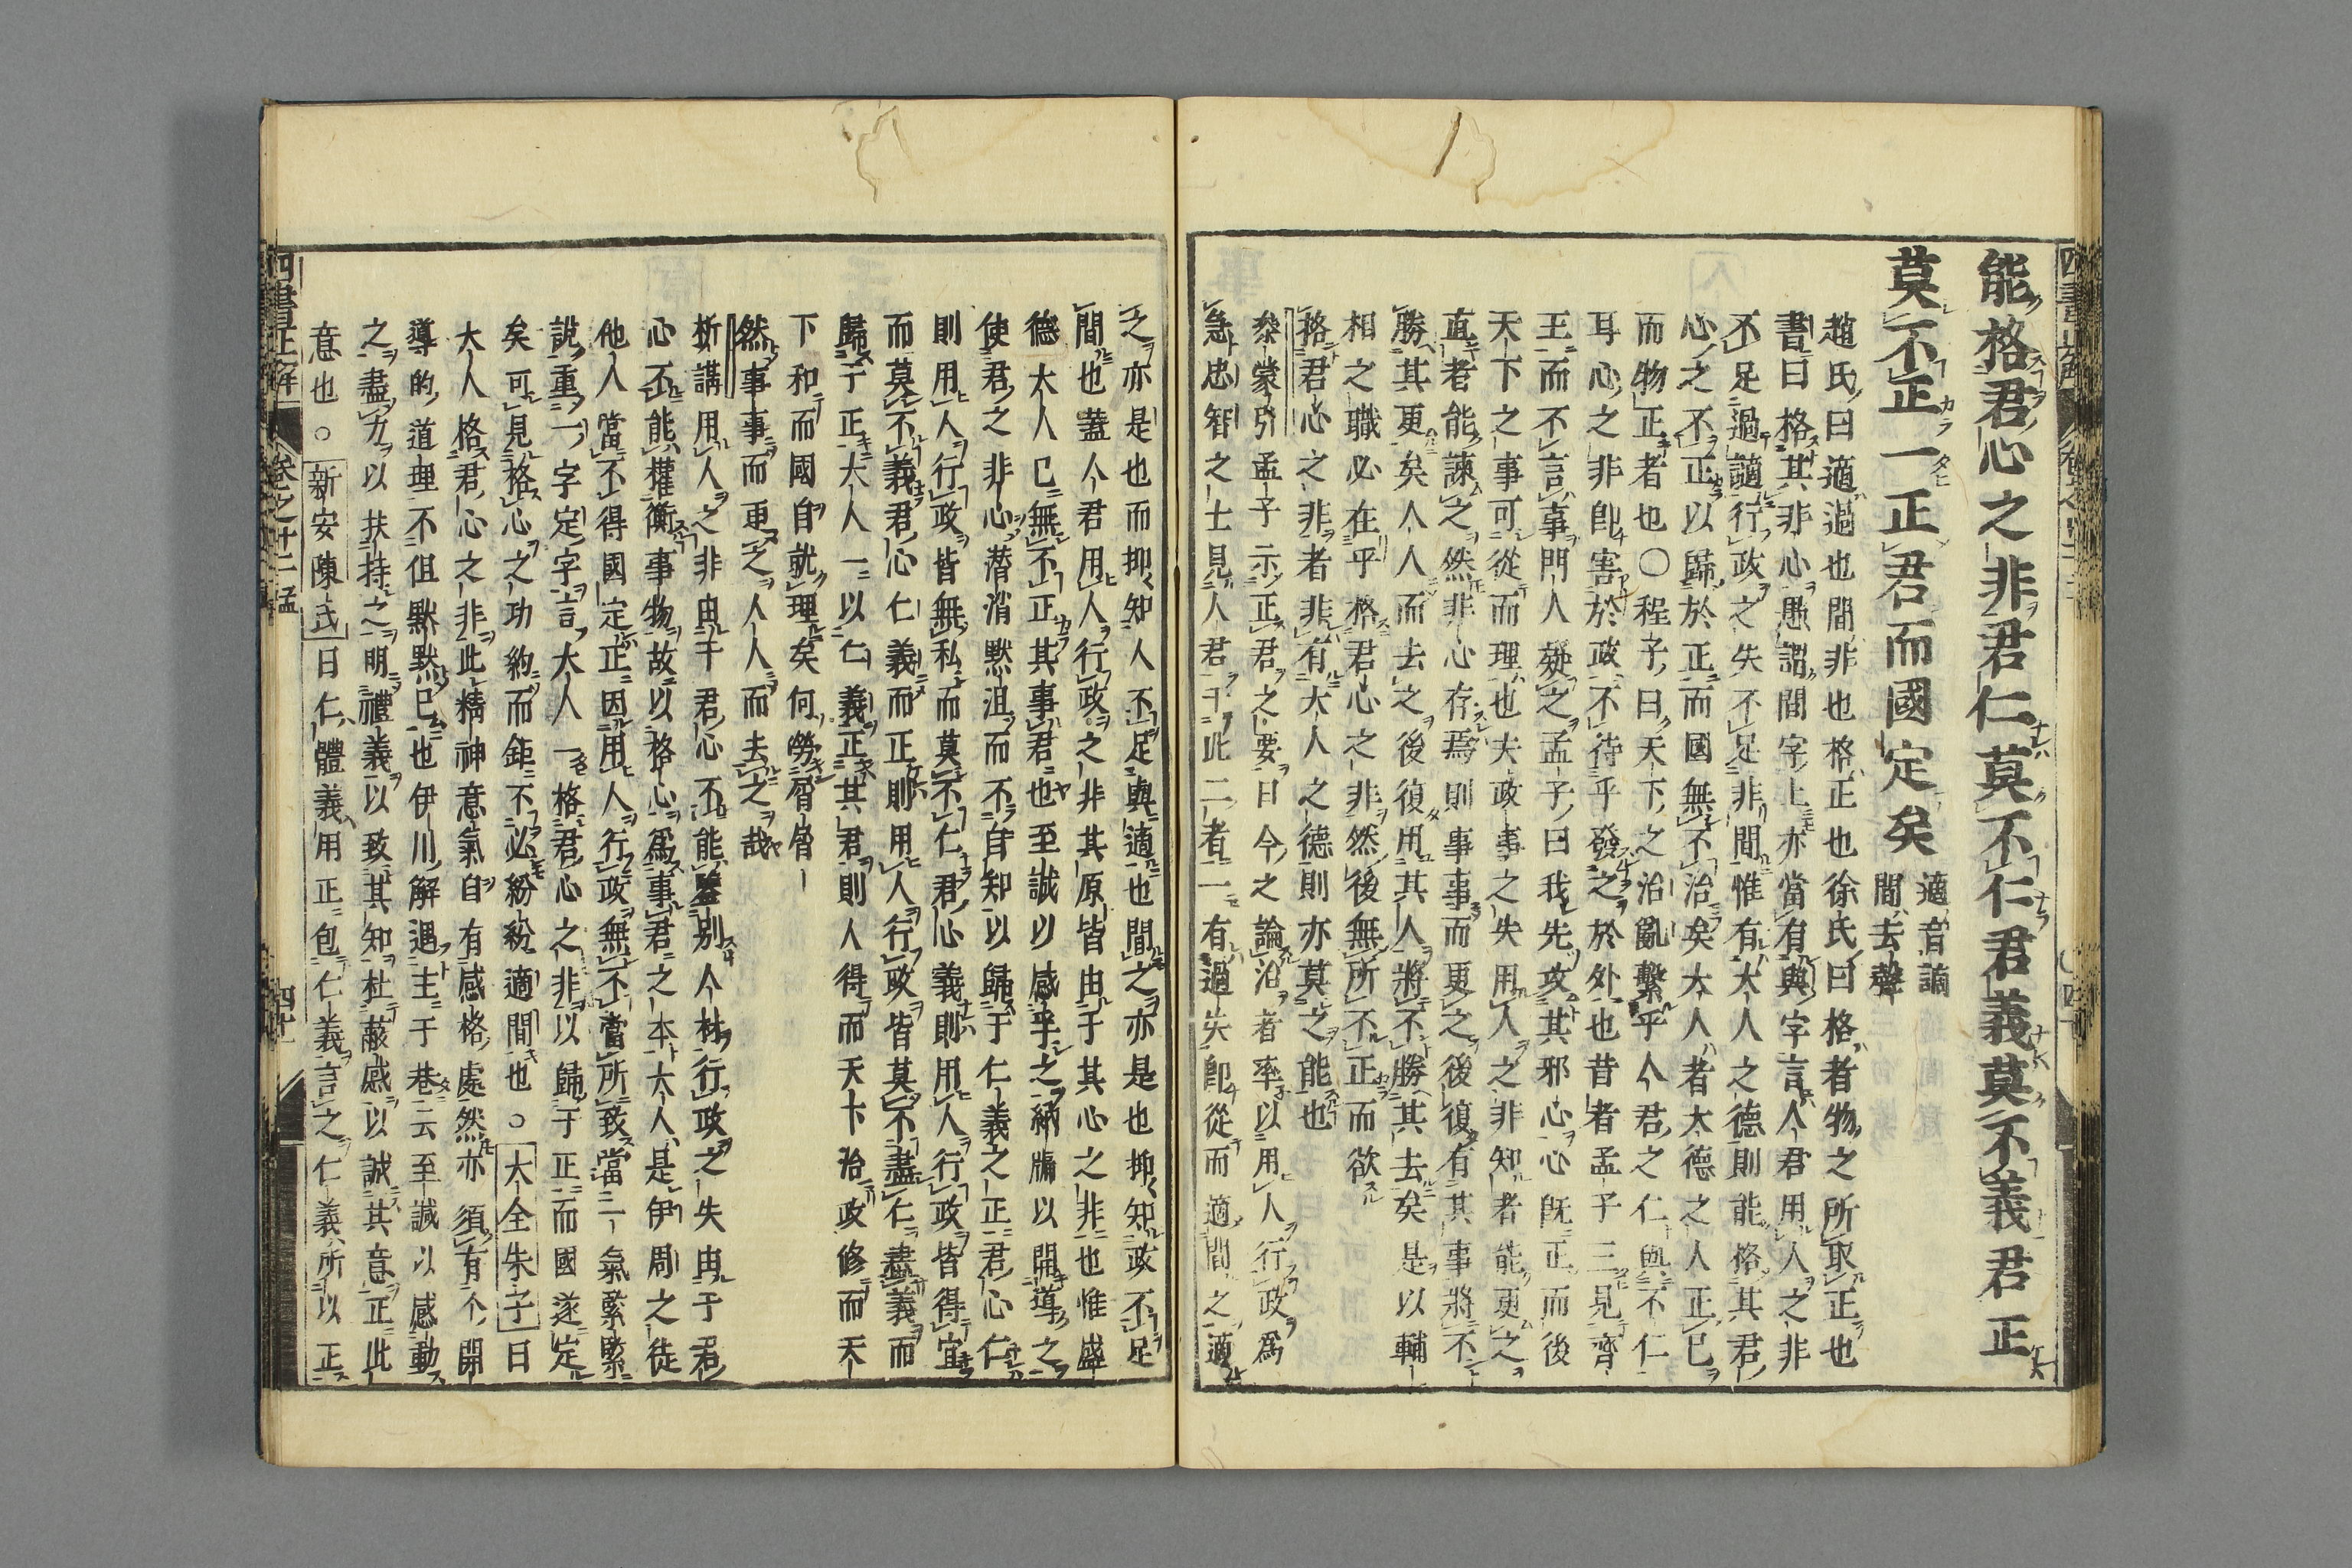 能格君心之非君仁莫不仁君義莫不義君正
莫不正一正君而國定矣
適音謫
間去聲
趙氏曰適過也間非也格正也徐氏曰格者物之所取正也
書曰格其非心愚謂間字上亦當有與字言人君用人之非
不足過謫行政之失不足非間惟有大人之德則能格其君
心之不正以歸於正而國無不治矣大人者大德之人正己
而物正者也○程子曰天下之治亂繫乎人君之仁與不仁
耳心之非卽害於政不待乎發之於外也昔者孟子三見齊
王而不言事門人疑之孟子曰我先攻其邪心心旣正而後
天下之事可從而理也夫政事之失用人之非知者能更之
直者能諫之然非心存焉則事事而更之後復有其事將不
勝其更矣人人而去之後復用其人將不勝其去矣是以輔
相之職必在乎格君心之非然後無所不正而欲
格君心之非者非有大人之德則亦莫之能也
叅蒙引孟子示正君之要曰今之論治者率以用人行政爲
急忠智之士見人君于此二者一有過失卽從而適間之適
之亦是也而抑知人不足與適也間之亦是也抑知政不足
間也蓋人君用人行政之非其原皆由于其心之非也惟盛
德大人已無不正其事君也至誠以感乎之納牖以開導之
使君之非心潛消默沮而不自知以歸于仁義之正君心仁
則用人行政皆無私而莫不仁君心義則用人行政皆得宜
而莫不義君心仁義而正則用人行政皆莫不盡仁盡義而
歸于正大人一以仁義正其君則人得而天下治政修而天
下和而國自就理矣何勞屑屑
然事事而更之人人而去之哉
析講用人之非由于君心不能鑒别人材行政之失由于君
心不能權衡事物故以格心爲事君之本大人是伊周之徒
他人當不得國定正因用人行政無不當所致當二氣緊緊
說重一字定字言大人一格君心之非以歸于正而國遂定
矣可見格心之功約而鉅不必紛紛適間也○大全朱子曰
大人格君心之非此精神意氣自有感格處然亦須有个開
導的道理不但默默已也伊川解遇主于巷云至誠以感動
之盡力以扶持之明禮義以致其知杜蔽惑以誠其意正此
意也○新安陳氏曰仁體義用正包仁義言之仁義所以正
四書正解
卷之十二孟
四十一